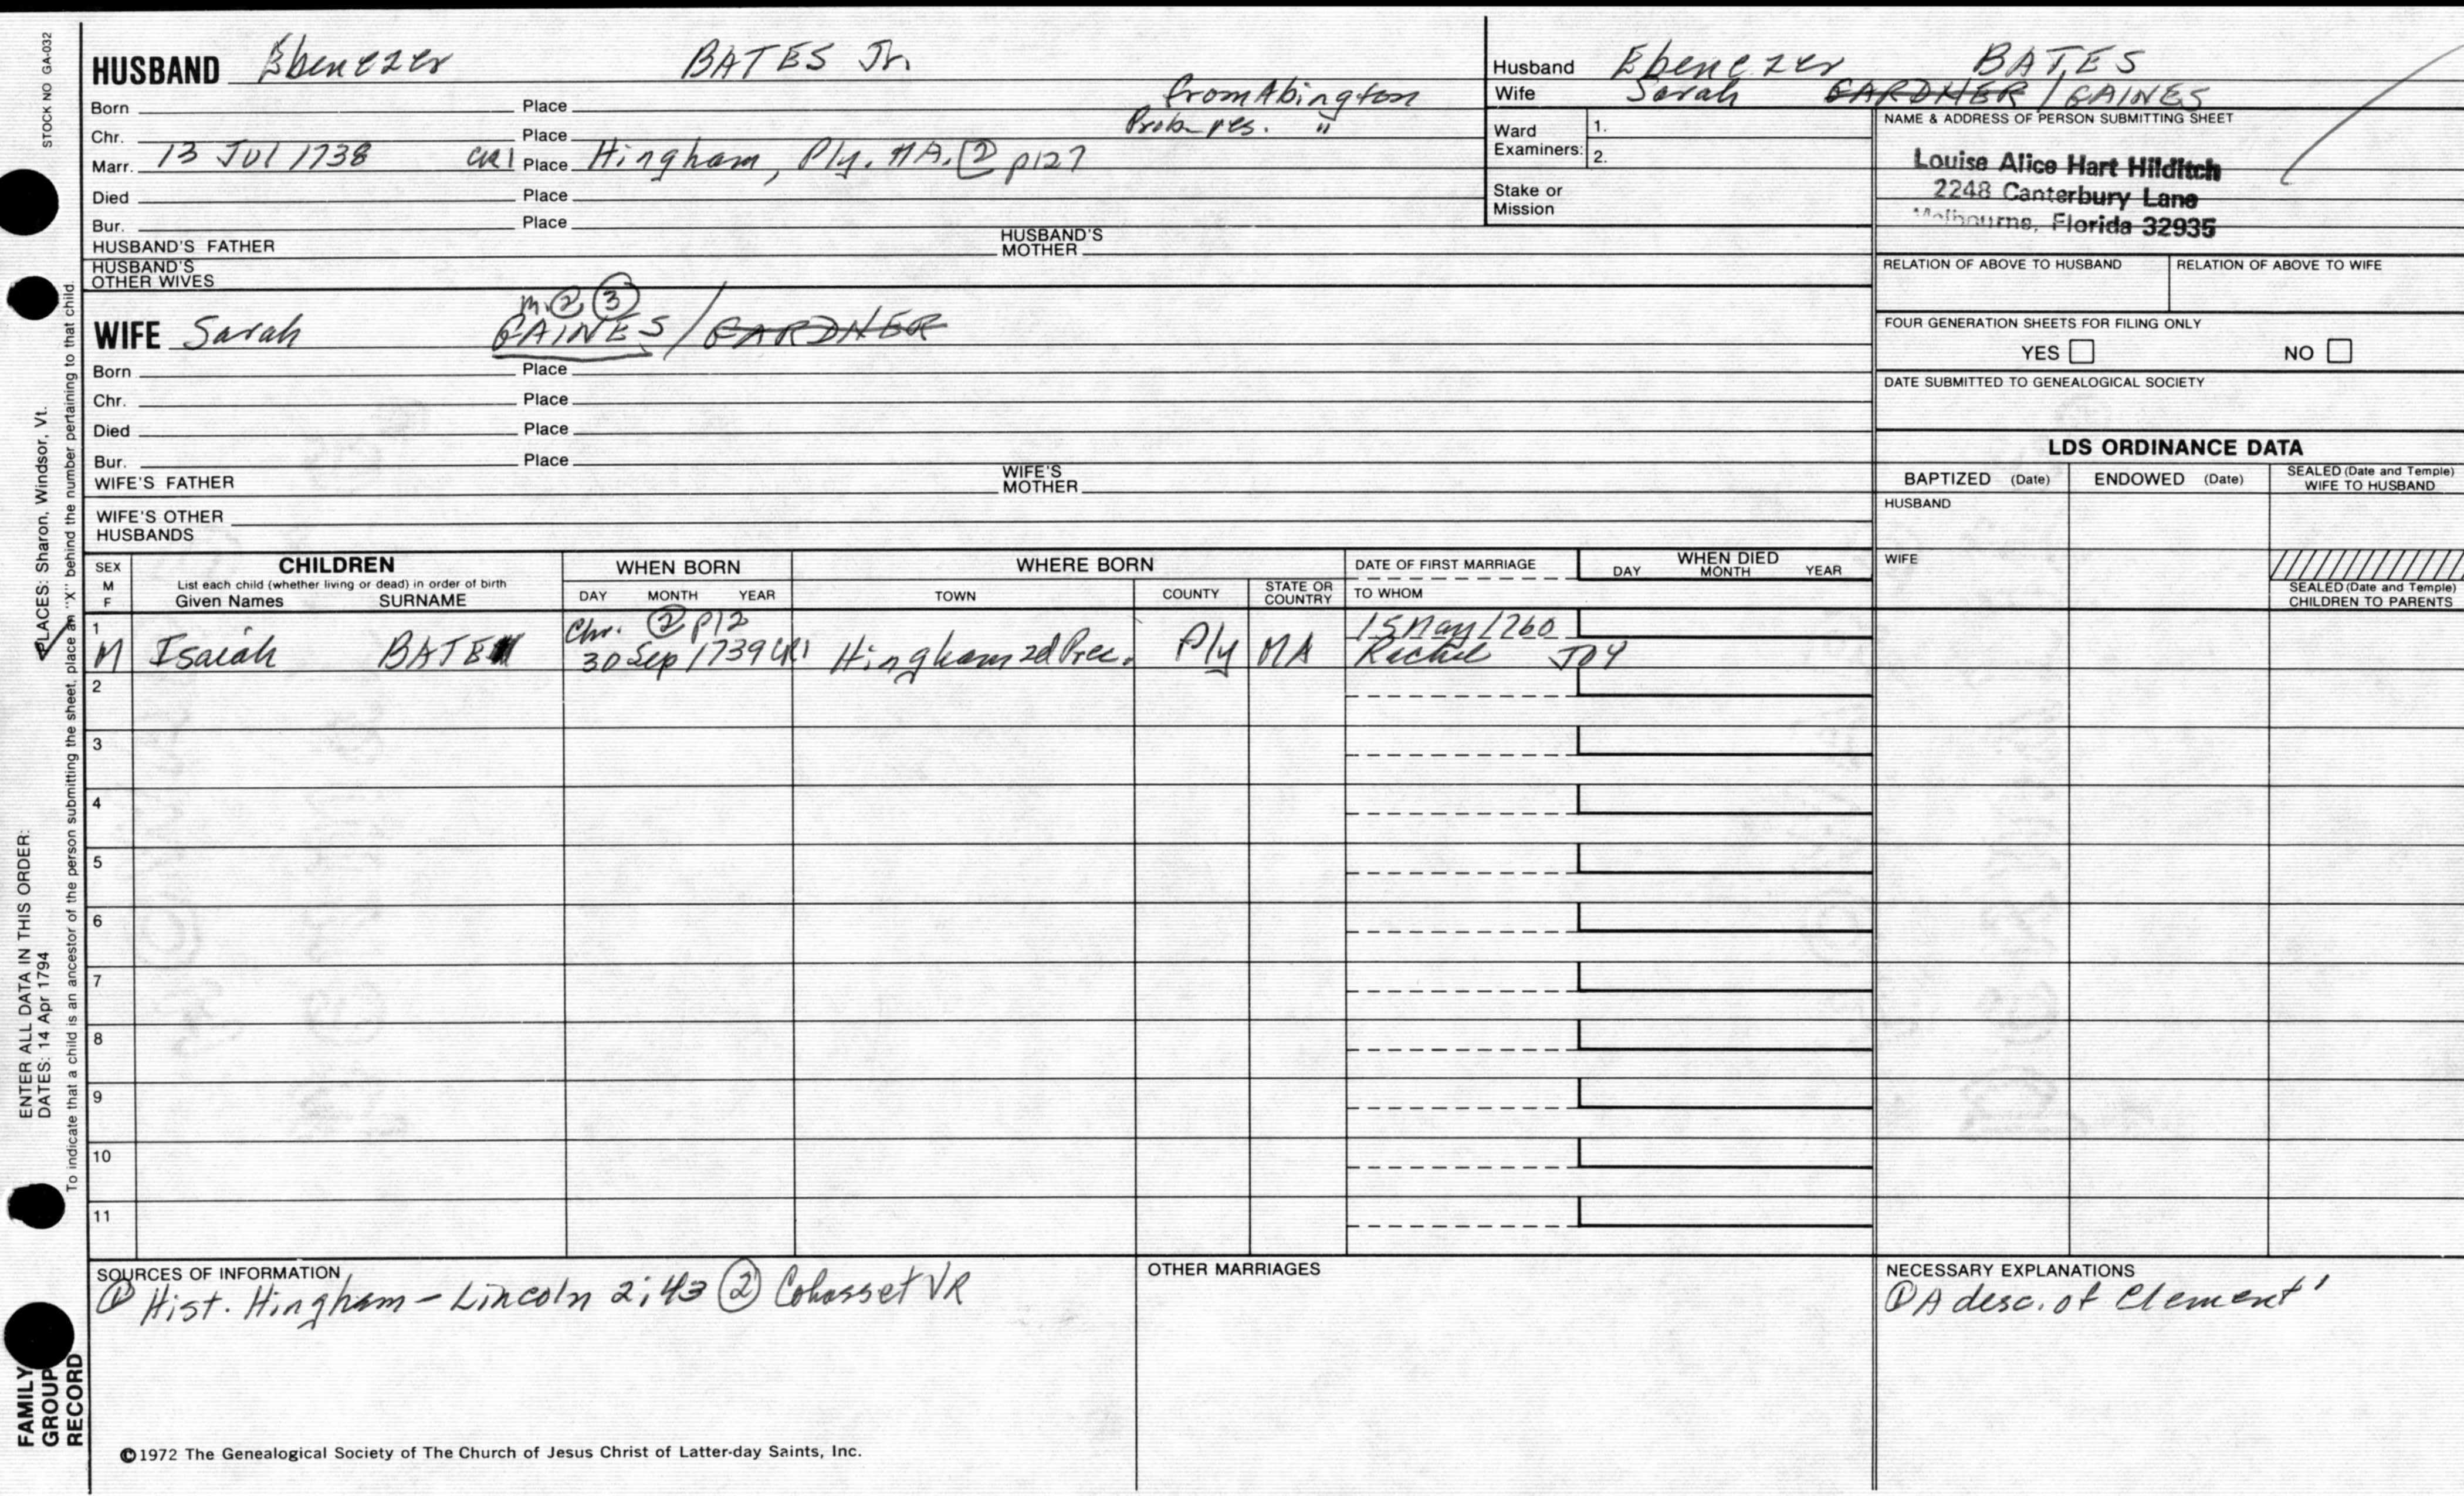 STOCK NO GA-032
HUSBAND Ebenezer BATES Jr.
Born Place from Abington
Chr. Place Prob. res. "
Marr. 13 Jul 1738 CR1 Place Hingham, Ply. MA. ② p127
Died Place
Bur. Place
HUSBAND'S FATHER HUSBAND'S MOTHER
HUSBAND'S OTHER WIVES
m. ② ③
WIFE Sarah GAINES / GARDNER
Born Place
Chr. Place
Died Place
Bur. Place
WIFE'S FATHER WIFE'S MOTHER
WIFE'S OTHER HUSBANDS
Husband Ebenezer BATES
Wife Sarah GARDNER / GAINES
Ward Examiners: 1.
2.
Stake or Mission
NAME & ADDRESS OF PERSON SUBMITTING SHEET
Louise Alice Hart Hilditch
2248 Canterbury Lane
Melbourne, Florida 32935
RELATION OF ABOVE TO HUSBAND RELATION OF ABOVE TO WIFE
FOUR GENERATION SHEETS FOR FILING ONLY
YES NO
DATE SUBMITTED TO GENEALOGICAL SOCIETY
LDS ORDINANCE DATA
BAPTIZED (Date) ENDOWED (Date) SEALED (Date and Temple) WIFE TO HUSBAND
HUSBAND
WIFE
SEALED (Date and Temple) CHILDREN TO PARENTS
SEX M F
CHILDREN
List each child (whether living or dead) in order of birth
Given Names SURNAME
WHEN BORN
DAY MONTH YEAR
WHERE BORN
TOWN COUNTY STATE OR COUNTRY
DATE OF FIRST MARRIAGE
TO WHOM
WHEN DIED
DAY MONTH YEAR
1 Chr. ② p12 15 May 1760
M Isaiah BATE 30 Sep 1739 CR1 Hingham 2d Prec. Ply MA Rachel JOY
2
3
4
5
6
7
8
9
10
11
SOURCES OF INFORMATION
① Hist. Hingham - Lincoln 2:43 ② Cohasset VR
OTHER MARRIAGES
NECESSARY EXPLANATIONS
① A desc. of Clement'
©1972 The Genealogical Society of The Church of Jesus Christ of Latter-day Saints, Inc.
FAMILY GROUP RECORD
ENTER ALL DATA IN THIS ORDER:
DATES: 14 Apr 1794
PLACES: Sharon, Windsor, Vt.
To indicate that a child is an ancestor of the person submitting the sheet, place an "X" behind the number pertaining to that child.